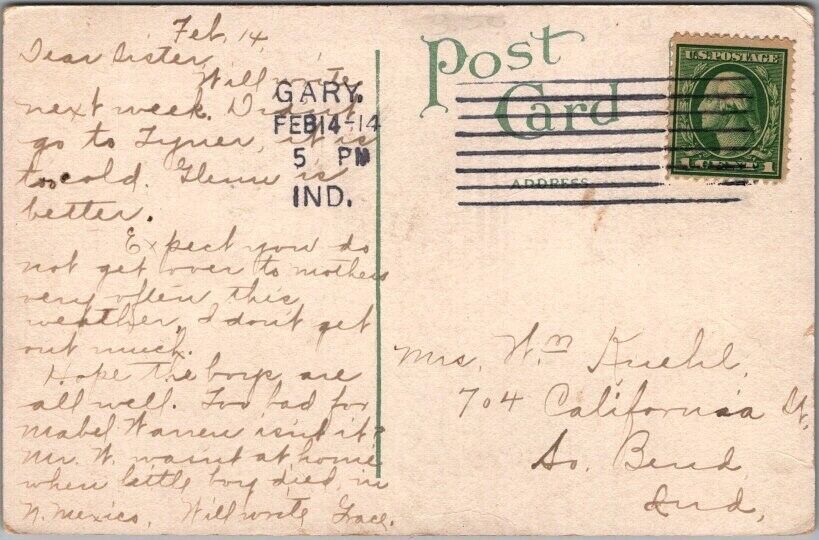 Feb, 14,
Dear Sister,
Will write
next week. Didn't
go to Tyner, it is
too cold. Glenn is
better.
Expect you do
not get over to mothers
very often this
weather, I dont get
out much.
Hope the boys are
all well. Too bad for
Mabel Warren isnt it?
Mr. W. wasnt at home
when little boy died, in
N. Mexico, Will write Grace.
GARY,
FEB 14-14
5 PM
IND.
Post
Card
ADDRESS
U.S. POSTAGE
1 CENT 1
Mrs. Wm Kuehl,
704 California St,
So. Bend
Ind,